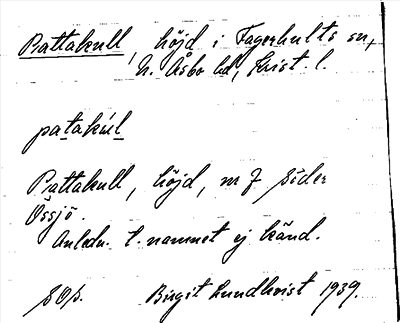 Pattakull, höjd i Fagerhults sn,
N. Åsbo hd, Krist. l.
patakúl
Pattakull, höjd, nr 7 Söder
Össjö.
Anledn. t. namnet ej känd.
Birgit Lundkvist 1939.